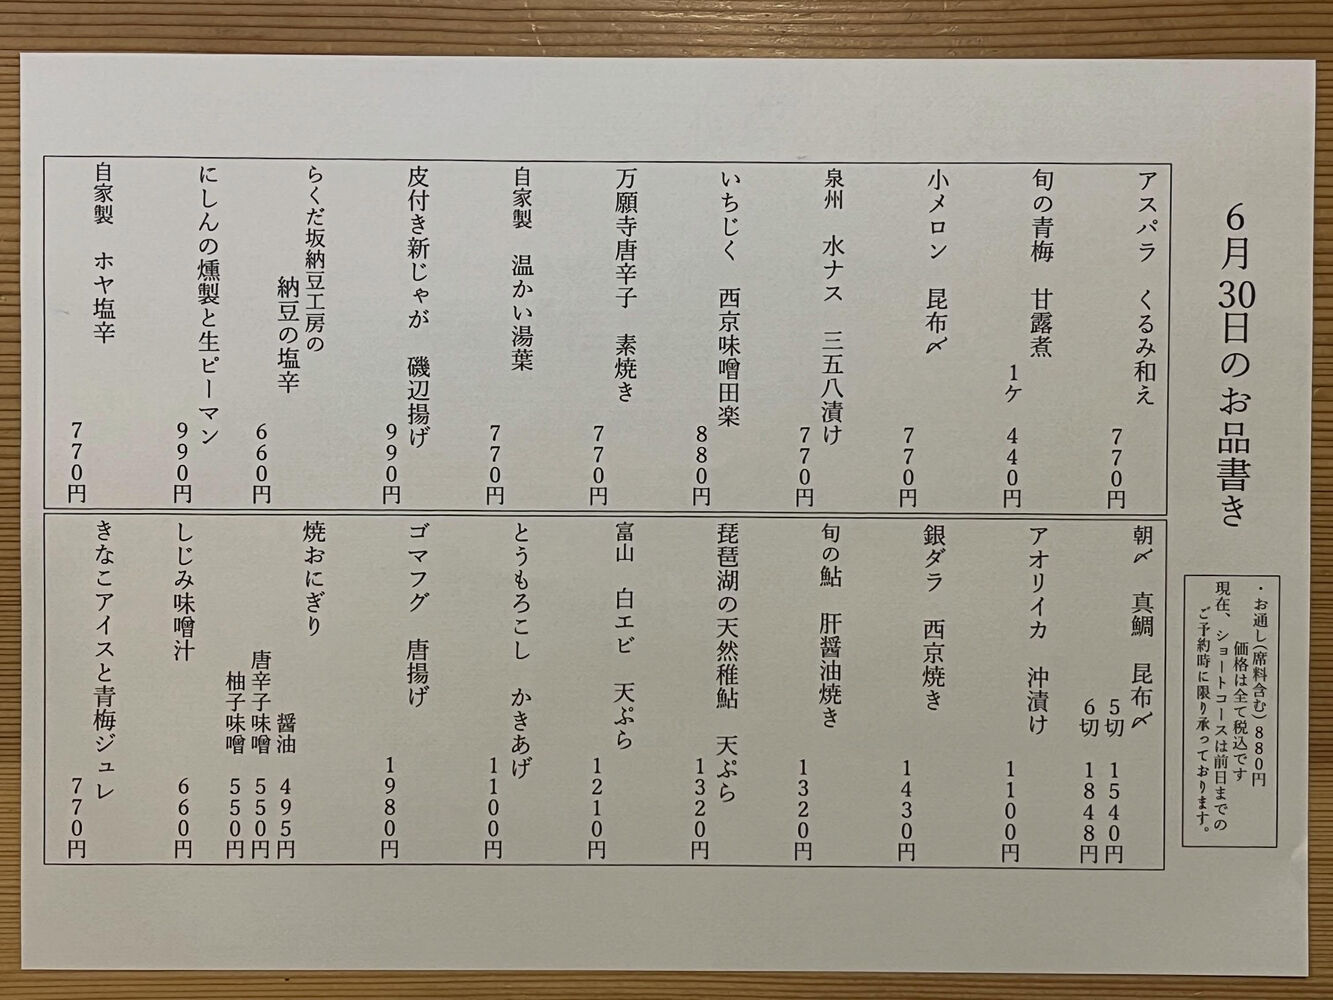 6月30日のお品書き
・お通し(席料含む)880円
価格は全て税込です
現在、ショートコースは前日までの
ご予約時に限り承っております。
アスパラ くるみ和え 770円
旬の青梅 甘露煮 1ケ 440円
小メロン 昆布〆 770円
泉州 水ナス 三五八漬け 770円
いちじく 西京味噌田楽 880円
万願寺唐辛子 素焼き 770円
自家製 温かい湯葉 770円
皮付き新じゃが 磯辺揚げ 990円
らくだ坂納豆工房の
納豆の塩辛 660円
にしんの燻製と生ピーマン 990円
自家製 ホヤ塩辛 770円
朝〆 真鯛 昆布〆
5切 1540円
6切 1848円
アオリイカ 沖漬け 1100円
銀ダラ 西京焼き 1430円
旬の鮎 肝醤油焼き 1320円
琵琶湖の天然稚鮎 天ぷら 1320円
富山 白エビ 天ぷら 1210円
とうもろこし かきあげ 1100円
ゴマフグ 唐揚げ 1980円
焼おにぎり
醤油 495円
唐辛子味噌 550円
柚子味噌 550円
しじみ味噌汁 660円
きなこアイスと青梅ジュレ 770円